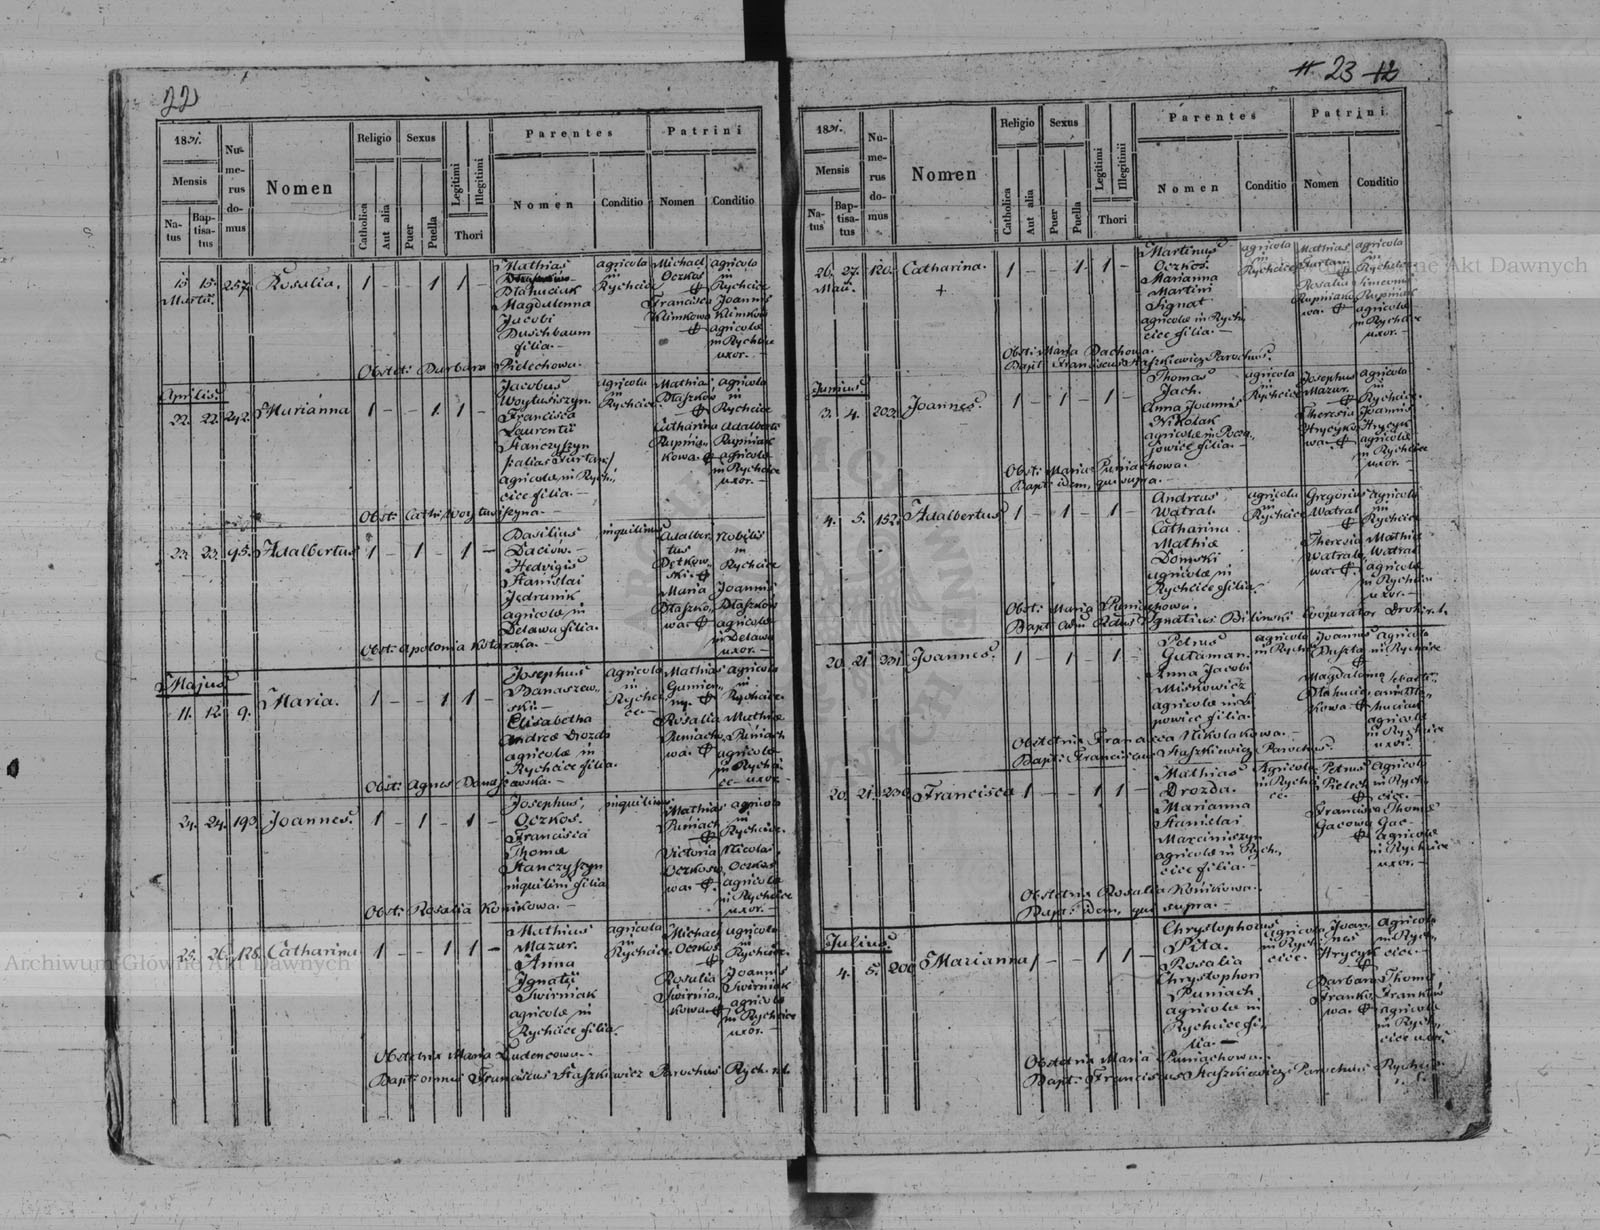 22
1831.
Mensis
Na-
tus
Bap-
tisa-
tus
Nu-
me-
rus
do-
mus
Nomen
Religio
Catholica
Aut alia
Sexus
Puer
Puella
Legitimi
Illegitimi
Thori
Parentes
Nomen
Conditio
Patrini
Nomen
Conditio
15 15. 257. Rosalia. 1 - - 1 1 -
Martii.
Mathias
Magdalenna
Jacobi
Duschbaum
filia. -
agricola
in
Rychcice
Michael
Oczkos
Francisca
Klimkowa
agricola
in
Rychcice
Joannis
Klimkow
agricolæ
in Rychcice
uxor. -
Obstet: Barbara Pidechowa.
Aprilis
22. 22. 242. Marianna 1 - - 1 1 -
Jacobus
Woytusiszyn.
Francisca
Laurentii
Stanczyszyn
agricolæ in Rych-
cice filia. -
Agricola
in
Rychcice.
Mathias
Ptaszkow
Catharina
Rupnia-
kowa.
agricola
in
Rychcice
Adalberti
Rupniak
agricolæ
in Rychcice
uxor. -
Obst: Cath: Woytusiszyna. -
23. 23. 95. Adalbertus 1 - 1 - 1 -
Basilius
Daciow. -
Hedvigis
Stanislai
Jędrunik
agricolæ in
Delawa filia.
inquilinus
Adalber-
tus
Dętkow-
ski.
Maria
Ptaszko-
wa.
Nobilis
in
Rychcice
Joannis
Ptaszkow
agricolæ
in Delawa
uxor. -
Obst: Apolonia Kotarska. -
Majus
11. 12. 9. Maria. 1 - - 1 1 -
Josephus
Banaszew-
ski. -
Elisabetha
Andreæ Drozda
agricolæ in
Rychcice filia.
Agricola
in
Rychci-
ce. -
Mathias
Gumien-
ny.
Rosalia
Puniacho-
wa.
agricola
in
Rychcice.
Mathiæ
Puniach
agricolæ
in Rychci-
ce - uxor.
Obst: Agnes Banaszewska. -
24. 24. 193. Joannes. 1 - 1 - 1 -
Josephus,
Oczkos.
Francisca
Thomæ
Stanczyszyn
inquilini filia
inquilinus
Mathias
Puniach
Victoria
Oczkow-
wa.
agricola
in
Rychcice.
Nicolai
Oczkos
agricolæ
in Rychcice
uxor. -
Obst: Rosalia Konikowa. -
25. 26. 178. Catharina 1 - - 1 1 -
Mathias
Mazur.
Anna
Ignatii
Swirniak
agricolæ in
Rychcice filia.
agricola
in
Rychcice.
Michael
Oczkos
Rosalia
Swirnia-
kowa
agricola
in
Rychcice.
Joannis
Swirniak
agricolæ
in Rychcice
uxor. -
Obstetrix Maria Dudencowa. -
Bapt: omnes Franciscus Staszkiewicz Parochus Rych. r.l.
23 12
1831.
Mensis
Na-
tus
Bap-
tisa-
tus
Nu-
me-
rus
do-
mus
Nomen
Religio
Catholica
Aut alia
Sexus
Puer
Puella
Legitimi
Illegitimi
Thori
Parentes
Nomen
Conditio
Patrini
Nomen
Conditio
26. 27. 120. Catharina. 1 - - 1 1 -
Maii. +
Martinus
Oczkos.
Marianna
Martini
Signat
agricolæ in Rych-
cice filia. -
agricola
in
Rychcice
Mathias
Furtan
Rosalia
Rupniako-
wa.
agricola
in
Rychcice
Simeonis
Rupniak
agricolæ
in Rychcice
uxor. -
Obst: Maria Dachowa.
Bapt: Franciscus Staszkiewicz Parochus.
Junius
3. 4. 203. Joannes. 1 - 1 - 1 -
Thomas
Jach.
Anna Joannis
Nikolak
jowice filia. -
agricola
in
Rychcice
Josephus
Mazur.
Theresia
Hrycyko-
wa
agricola
in
Rychcice.
Joannis
Hrycyk
agricolæ
in Rychcice
uxor. -
Obst: Maria Puniachowa.
Bapt: idem, qui supra. -
4. 5. 152. Adalbertus 1 - 1 - 1 -
Andreas
Watral.
Catharina
Mathiæ
Domski
agricolæ in
Rychcice filia.
agricola
in
Rychcice
Gregorius
Watral
Theresia
Watralo-
wa.
agricola
in
Rychcice
Mathiæ
Watral
agricolæ
in Rychcice
uxor. -
Obst: Maria Puniachowa.
Bapt: Adm Rdus Ignatius Biliński Cooperator Droho. r.l.
20. 21. 231. Joannes. 1 - 1 - 1 -
Petrus
Gutaman.
Anna Jacobi
Miskowicz
powice filia.
agricola
in Rychc
Joannes
Duszta
Magdalena
Ptahucia-
kowa
agricola
in Rychcice
Sebasti-
ani Pta-
huciak
agricolæ
in Rychcice
uxor.
Obstetrix Francisca Nikolakowa. -
Bapt: Franciscus Staszkiewicz Parochus.
20. 21. 230. Francisca 1 - - 1 1 -
Mathias
Drozda.
Marianna
Stanislai
Marciniszyn
agricolæ in Rych-
cice filia. -
Agricola
in Rychci-
ce.
Petrus
Pielech
Francisca
Gacowa
Agricola
in Rych-
cice. -
Thomæ
Gac -
agricolæ
in Rychcice
uxor. -
Obstetrix Rosalia Konikowa.
Bapt: idem, qui supra. -
Julius
4. 5. 200. Marianna 1 - - 1 1 -
Chrystophorus
Pita.
Rosalia
Chrystophori
Puniach
agricolæ in
Rychcice fi-
lia. -
agricola
in Rych-
cice.
Joan-
nes
Hrycyk
Barbara
Franko-
wa.
Agricola
in Rych-
cice. -
Thomæ
Franków
agricolæ
in Rych-
cice uxor.
Obstetrix Maria Puniachowa.
Bapt: Franciscus Staszkiewicz Parochus Rychcic.
Archiwum Główne Akt Dawnych
Archiwum Główne Akt Dawnych